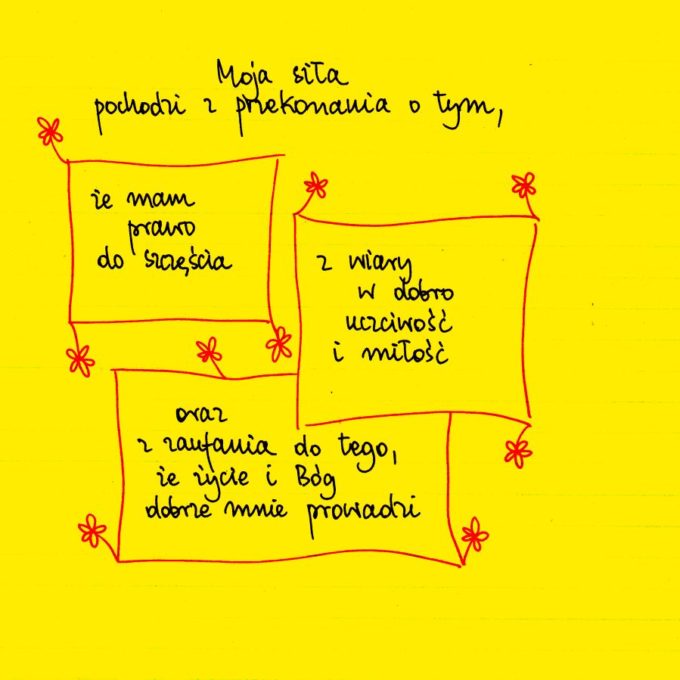 Moja siła
pochodzi z przekonania o tym,
że mam
prawo
do szczęścia
z wiary
w dobro
uczciwość
i miłość
oraz
z zaufania do tego,
że życie i Bóg
dobrze mnie prowadzi